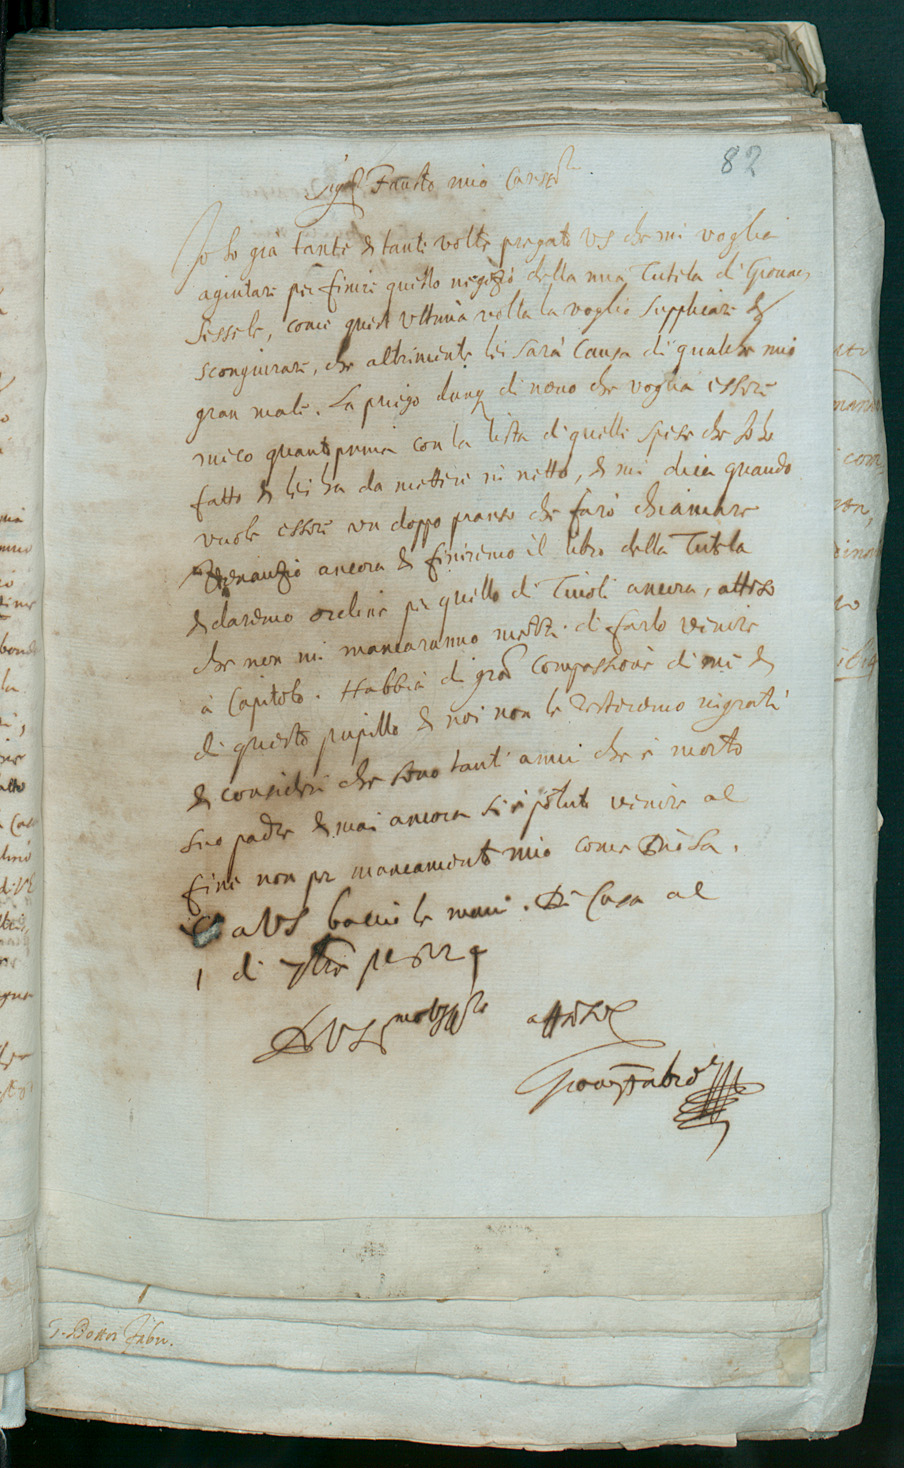 82
Sigr Fausto mio Carissmo
Io ho già tante & tante volte pregato VS che mi voglia
agiutare per finire questo negozio della mia Tutela di
come quest ultima volta la voglio supplicare &
scongiurare, che altrimente lei sarà causa di qualche mio
gran male. La priego dunq di novo che voglia essere
meco quantoprima con la lista di quelle spese che Io ho
fatto & lei ha da mettere in netto, & mi dica quando
vuole essere un doppo pranso che farò chiamare
ancora & finiremo il libro della Tutela
& daremo ordine per quello di Tivoli ancora, atteso
che non mi mancaranno mezzi di farlo venire
à Capitolo. Habbia di gra compassione di me &
di questo pupillo & noi non le resteremo ingrati
& consideri che sono tanti anni che è morto
suo padre & mai ancora si è potuto venire al
fine non per mancamento mio come Dio sa.
a VS bacio le mani. Di Casa al
1 di
Di VS
Giovanni Fabro